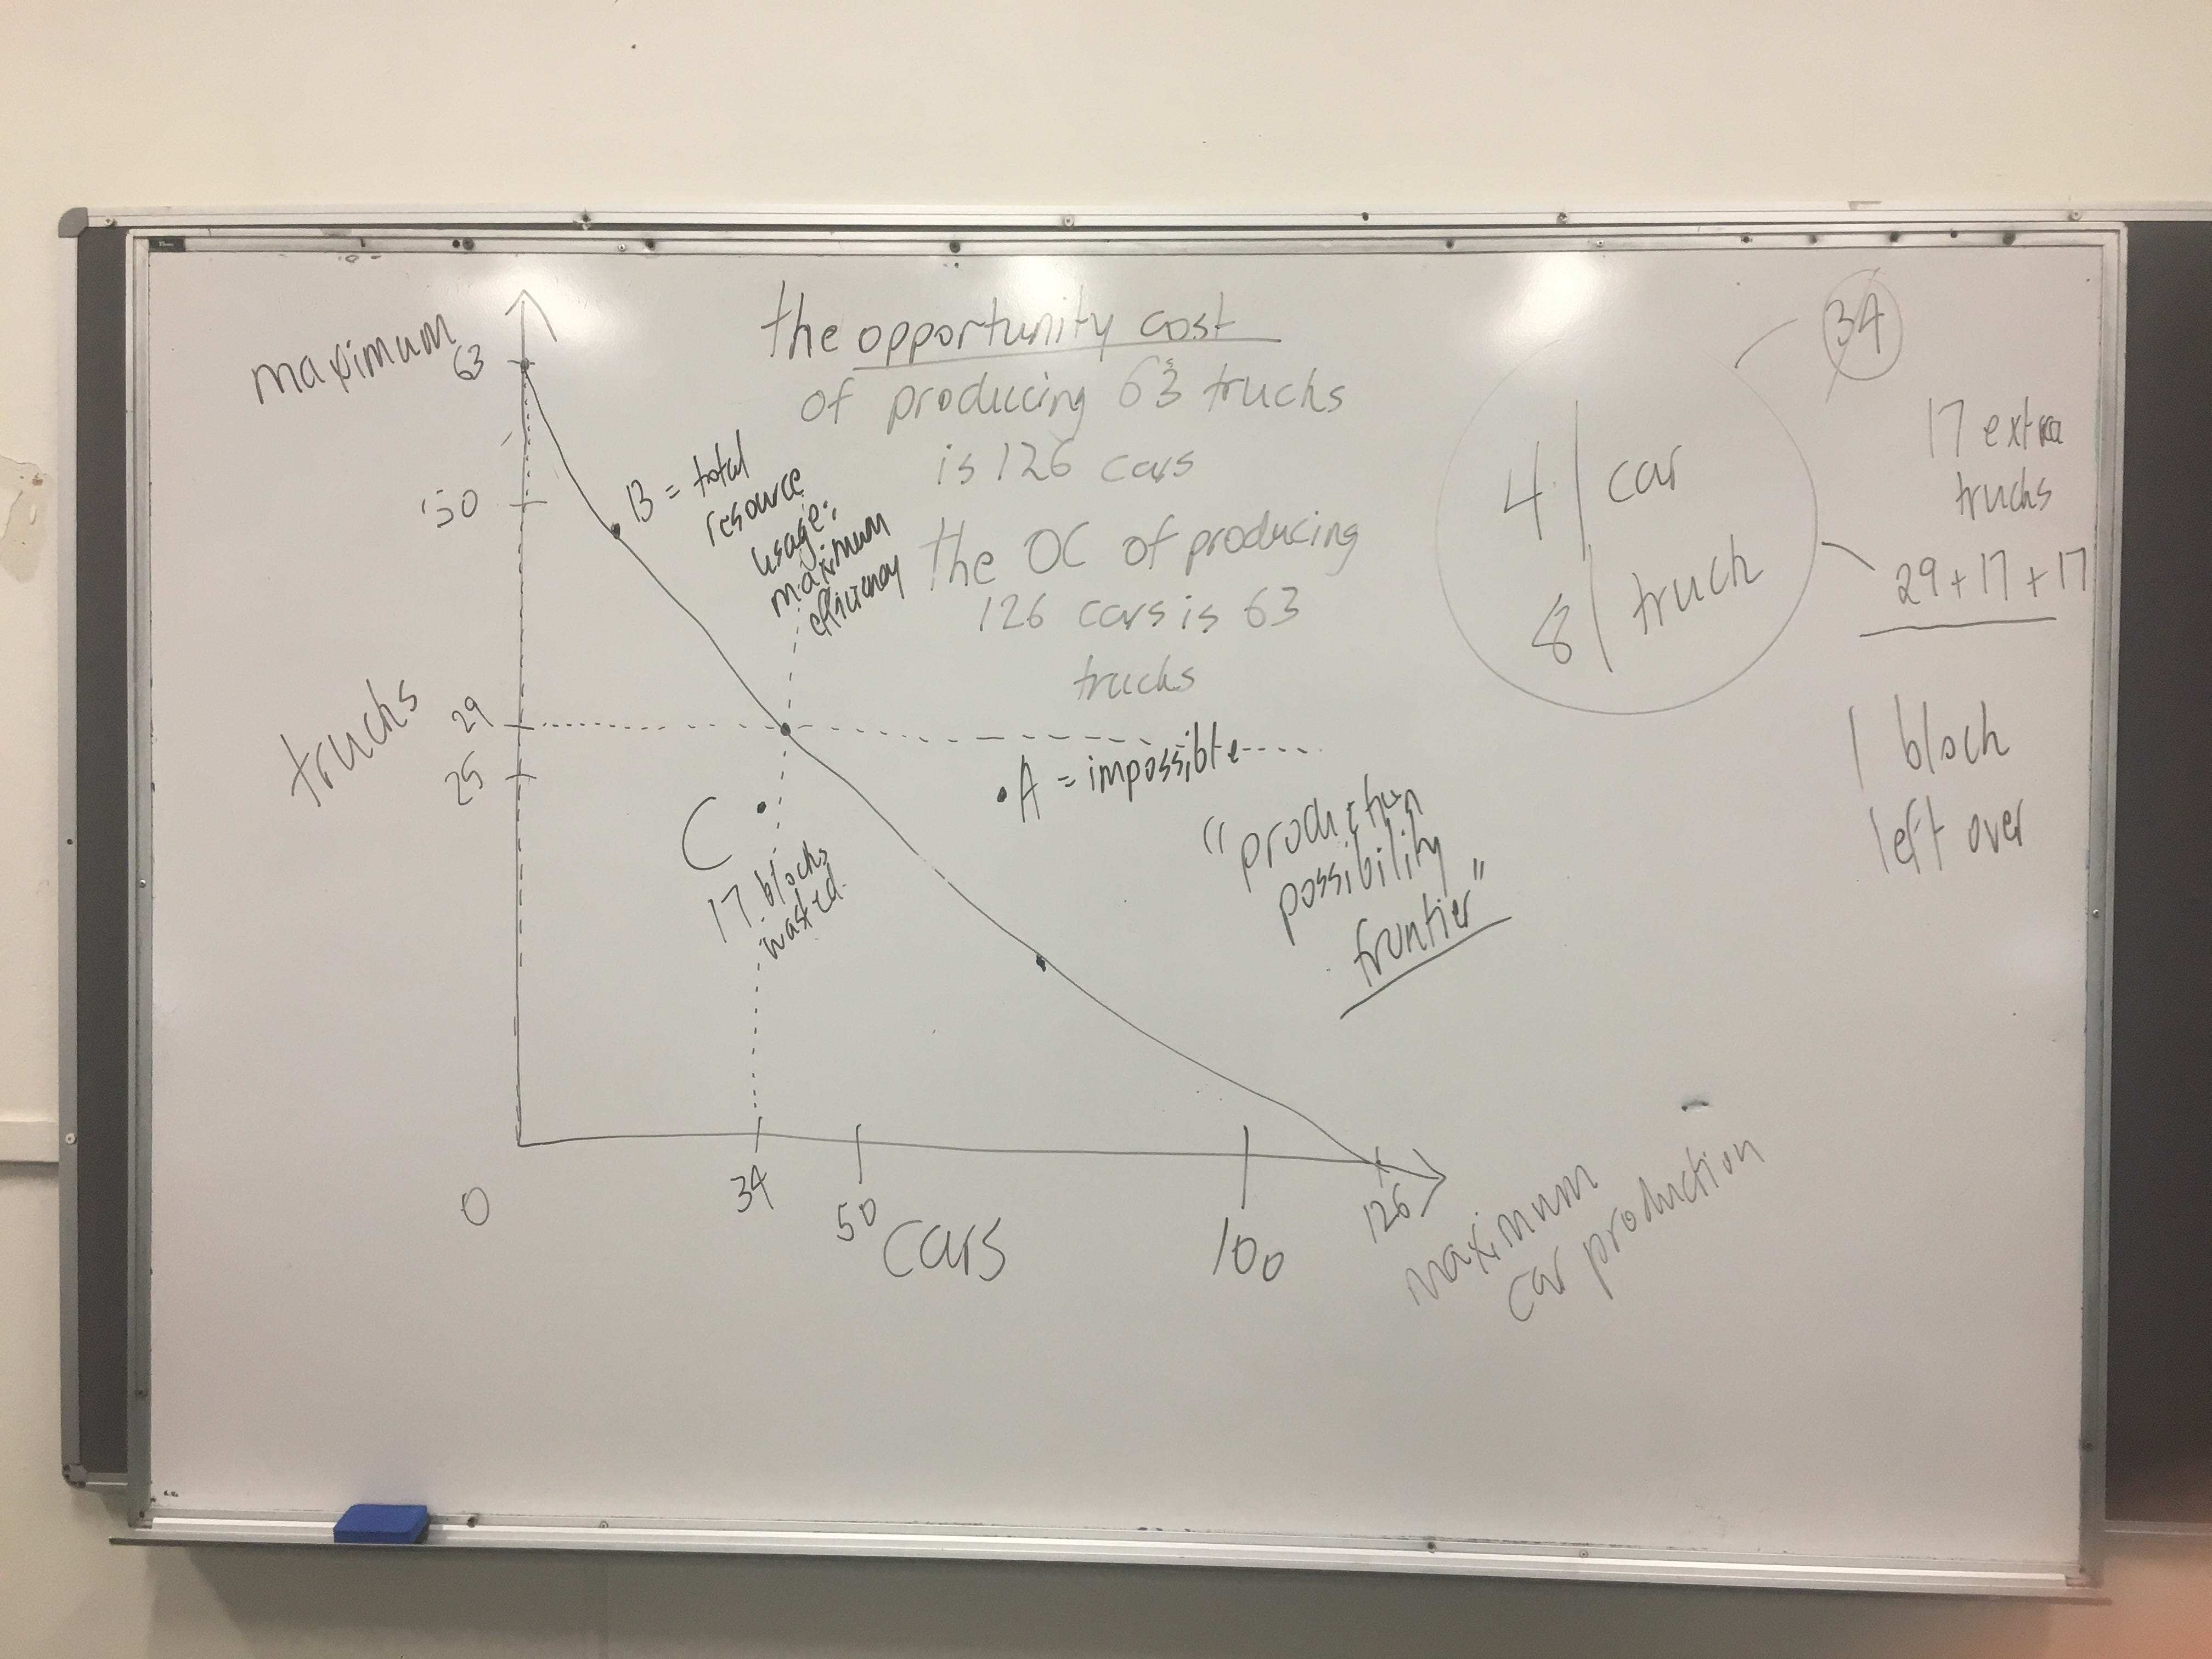 the opportunity cost
of producing 63 trucks
is 126 cars
the OC of producing
126 cars is 63
trucks
maximum
63
50
trucks
29
25
0
B = total
resource
usage;
maximum
efficiency
A = impossible
C
17 blocks
wasted
"production
possibility
frontier"
34
50
cars
100
126
maximum
car production
4 | car
8 | truck
34
17 extra
trucks
29 + 17 + 17
1 block
left over